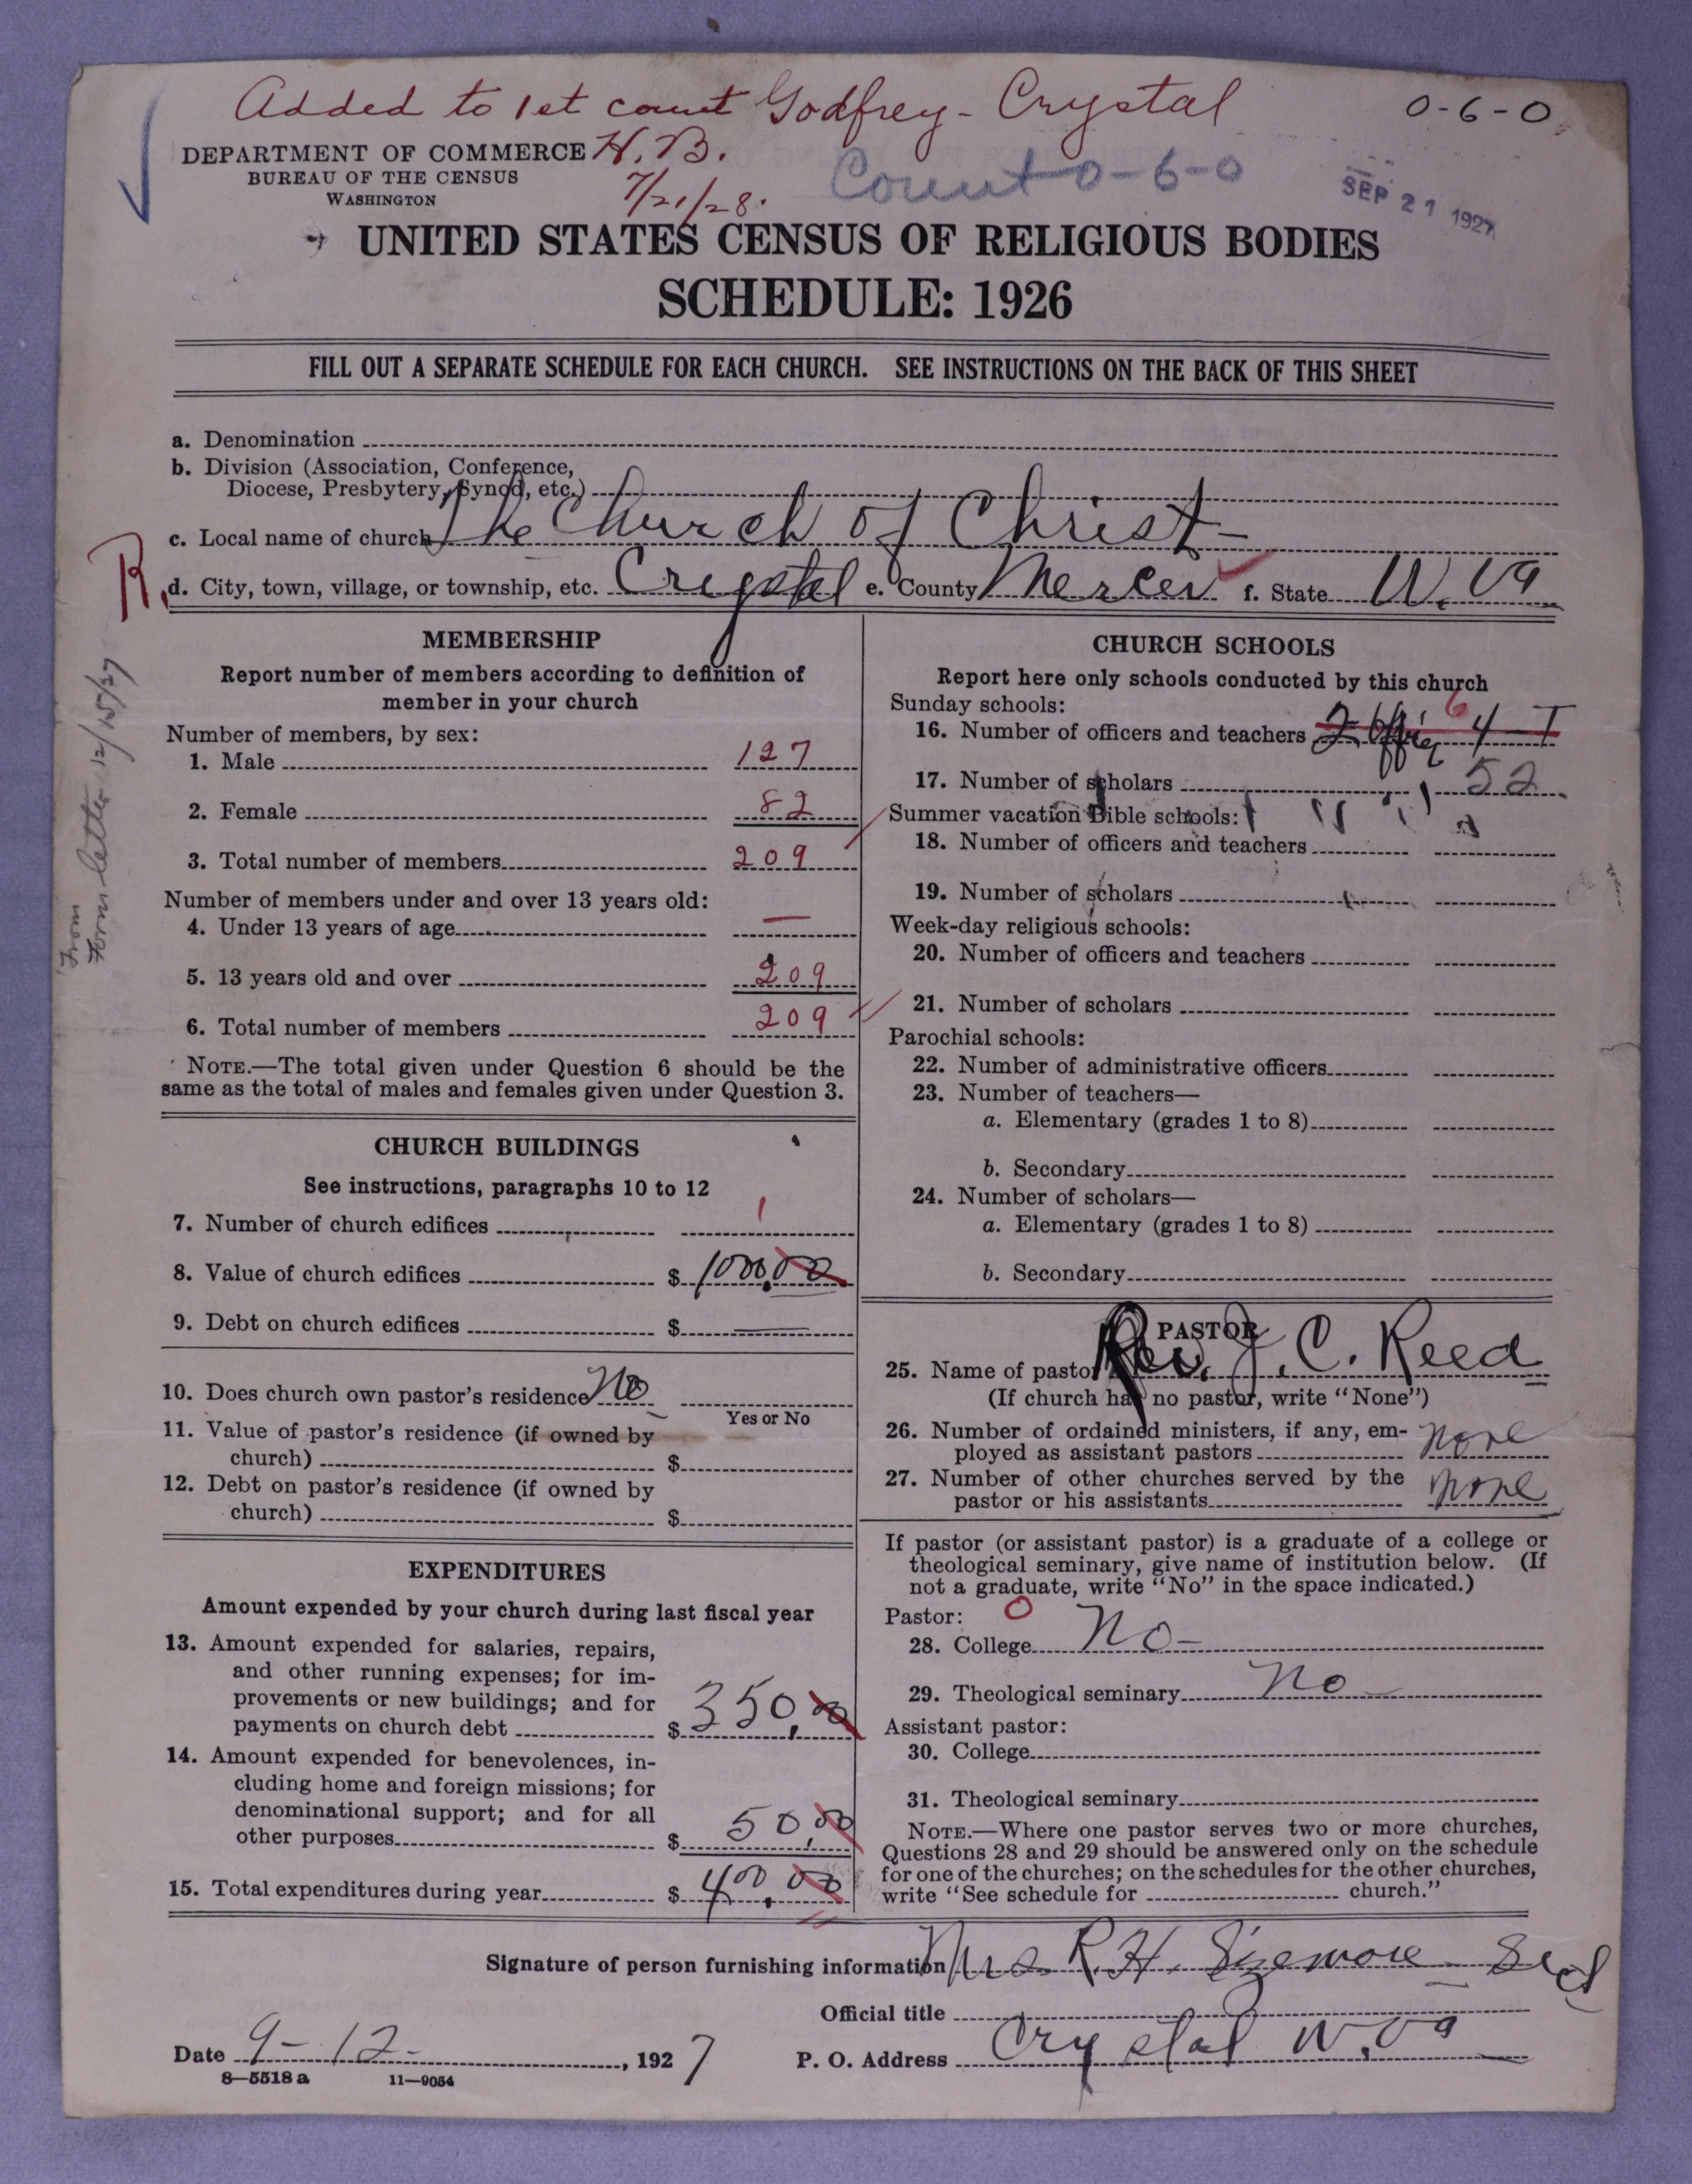 Added to 1st count Godfrey - Crystal 0-6-0
DEPARTMENT OF COMMERCE H. B.
BUREAU OF THE CENSUS
WASHINGTON
7/21/28.
Count 0-6-0
SEP 21 1927
UNITED STATES CENSUS OF RELIGIOUS BODIES
SCHEDULE: 1926
FILL OUT A SEPARATE SCHEDULE FOR EACH CHURCH. SEE INSTRUCTIONS ON THE BACK OF THIS SHEET
a. Denomination
b. Division (Association, Conference,
Diocese, Presbytery, Synod, etc.)
c. Local name of church The Church of Christ -
R. d. City, town, village, or township, etc. Crystal e. County Mercer f. State W. Va
From
Form letter 12/15/27
MEMBERSHIP
Report number of members according to definition of
member in your church
Number of members, by sex:
1. Male 127
2. Female 82
3. Total number of members 209
Number of members under and over 13 years old:
4. Under 13 years of age —
5. 13 years old and over 209
6. Total number of members 209
NOTE.—The total given under Question 6 should be the
same as the total of males and females given under Question 3.
CHURCH BUILDINGS
See instructions, paragraphs 10 to 12
7. Number of church edifices 1
8. Value of church edifices $ 1000.00
9. Debt on church edifices $ —
10. Does church own pastor's residence No
Yes or No
11. Value of pastor's residence (if owned by
church) $
12. Debt on pastor's residence (if owned by
church) $
EXPENDITURES
Amount expended by your church during last fiscal year
13. Amount expended for salaries, repairs,
and other running expenses; for im-
provements or new buildings; and for
payments on church debt $ 350.00
14. Amount expended for benevolences, in-
cluding home and foreign missions; for
denominational support; and for all
other purposes $ 50.00
15. Total expenditures during year $ 400.00
CHURCH SCHOOLS
Report here only schools conducted by this church
Sunday schools:
6
16. Number of officers and teachers 2 4 - T
17. Number of scholars 52
Summer vacation Bible schools:
18. Number of officers and teachers
19. Number of scholars
Week-day religious schools:
20. Number of officers and teachers
21. Number of scholars
Parochial schools:
22. Number of administrative officers
23. Number of teachers—
a. Elementary (grades 1 to 8)
b. Secondary
24. Number of scholars—
a. Elementary (grades 1 to 8)
b. Secondary
PASTOR
25. Name of pastor Rev. J. C. Reed
(If church has no pastor, write "None")
26. Number of ordained ministers, if any, em-
ployed as assistant pastors none
27. Number of other churches served by the
pastor or his assistants none
If pastor (or assistant pastor) is a graduate of a college or
theological seminary, give name of institution below. (If
not a graduate, write "No" in the space indicated.)
Pastor: 0
28. College No -
29. Theological seminary No -
Assistant pastor:
30. College
31. Theological seminary
NOTE.—Where one pastor serves two or more churches,
Questions 28 and 29 should be answered only on the schedule
for one of the churches; on the schedules for the other churches,
write "See schedule for church."
Signature of person furnishing information Mrs R. H. Sizemore -
Official title
Date 9-12-, 1927 P. O. Address Crystal W. Va
8—5518a 11—9054